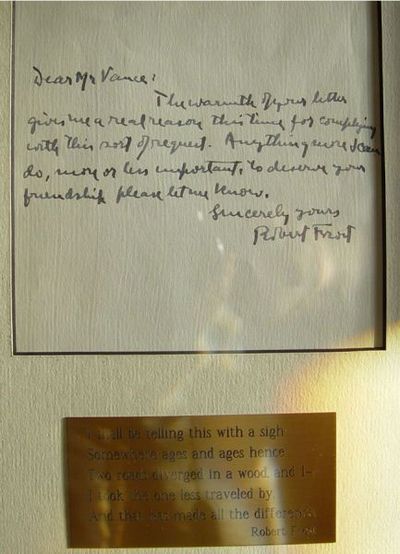 Dear Mr Vance:
The warmth of your letter
gives me a real reason this time for complying
with this sort of request. Anything more I can
do, more or less important, to deserve your
friendship please let me know.
Sincerely yours
Robert Frost
I shall be telling this with a sigh
Somewhere ages and ages hence
Two roads diverged in a wood, and I-
I took the one less traveled by,
And that has made all the difference.
Robert Frost